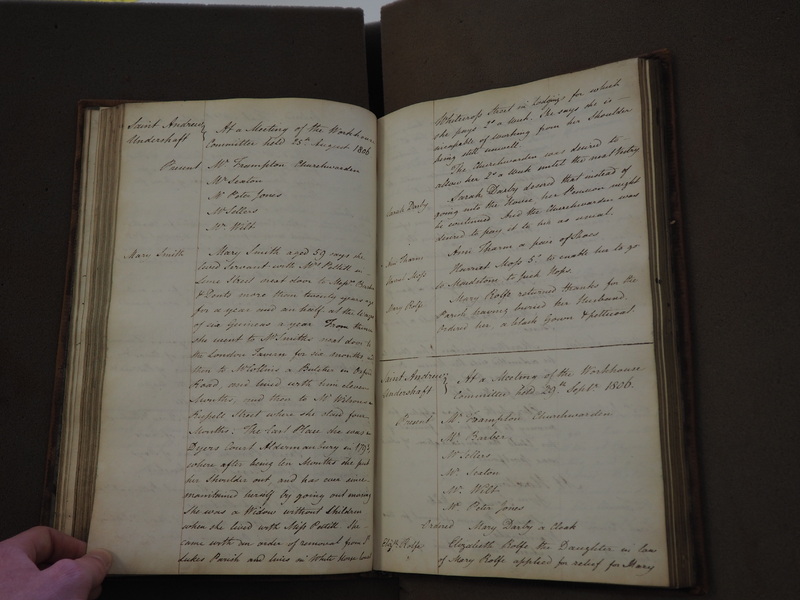 Saint Andrew
Undershaft
At a Meeting of the Workhouse
Committee held 28th August 1806
Present Mr Frampton Churchwarden
Mr Seaton
Mr Peter Jones
Mr Sellers
Mr Wilt
Mary Smith
Mary Smith aged 59 says she
lived Servant with Mrs Pellitt in
Lime Street next door to Messrs
& Ponts more than twenty years ago
for a year and an half at the Wages
of six Guineas a year From thence
she went to Mr Smiths next door to
the London Tavern for six months
then to a Butcher in
Road and lived with him eleven
Months, and then to Mr
Russell Street where she staid four
Months. The Last Place she was
Dyers Court Aldermanbury in
where after being ten Months she put
her Shoulder out, and has ever since
maintained herself by going out
She was a Widow without Children
when she lived with Miss Pellitt She
came with an order of removal from St
Lukes Parish and lives in White horse
Whitecross Street in lodgings for which
she pays 2s a Week. She says she is
incapable of working from her Shoulder
being still unwell.
The Churchwarden was desired to
allow her 2s a Week until the next Vestry
Sarah Darby
Sarah Darby desired that instead of
going into the House, her Pension might
be continued And the Churchwarden was
desired to pay it to her as usual.
Ann Tharm
Ann Tharm a pair of Shoes
Harriet Moss
Harriet Moss 5s. to enable her to go
to Maidstone to pick Hops
Mary Rolfe
Mary Rolfe returned thanks for the
Parish having buried her Husband.
Ordered her a black Gown & petticoat.
Saint Andrew
Undershaft
At a Meeting of the Workhouse
Committee held 29th Septr 1806.
Present Mr Frampton Churchwarden
Mr Barber
Mr Sellers
Mr Seaton
Mr Wilt
Mr Peter Jones
Ordered Mary Darby a Cloak
Elizth Rolfe
Elizabeth Rolfe the Daughter in law
of Mary Rolfe applied for relief for Mary